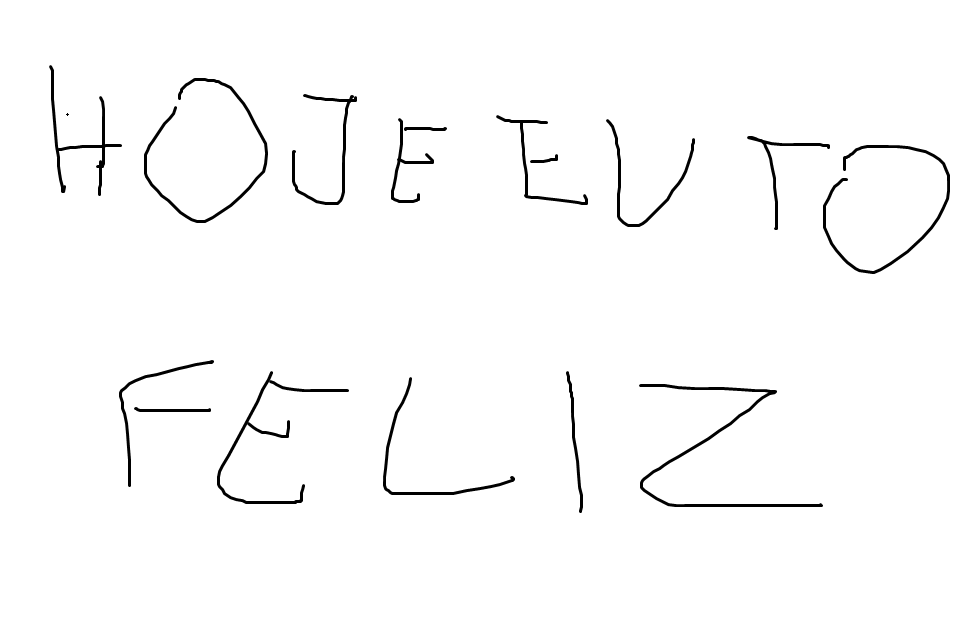 HOJE EU TO
FELIZ